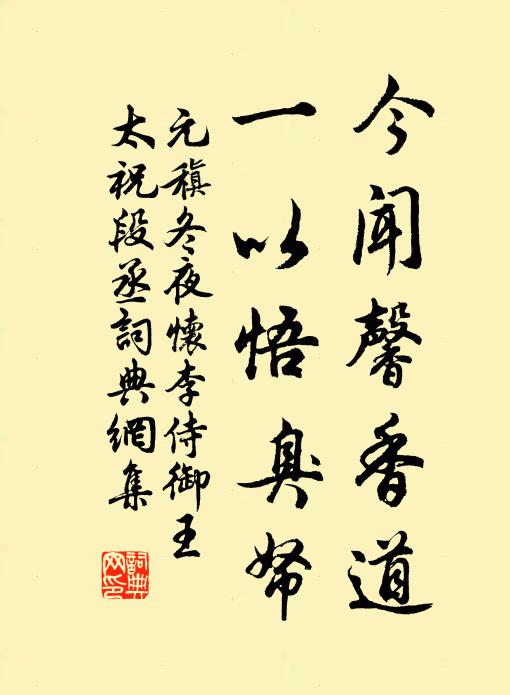 今聞馨香道
一以悟臭帑
元稹冬夜懷李侍御王
太祝段丞詞典網集
詞典
网印